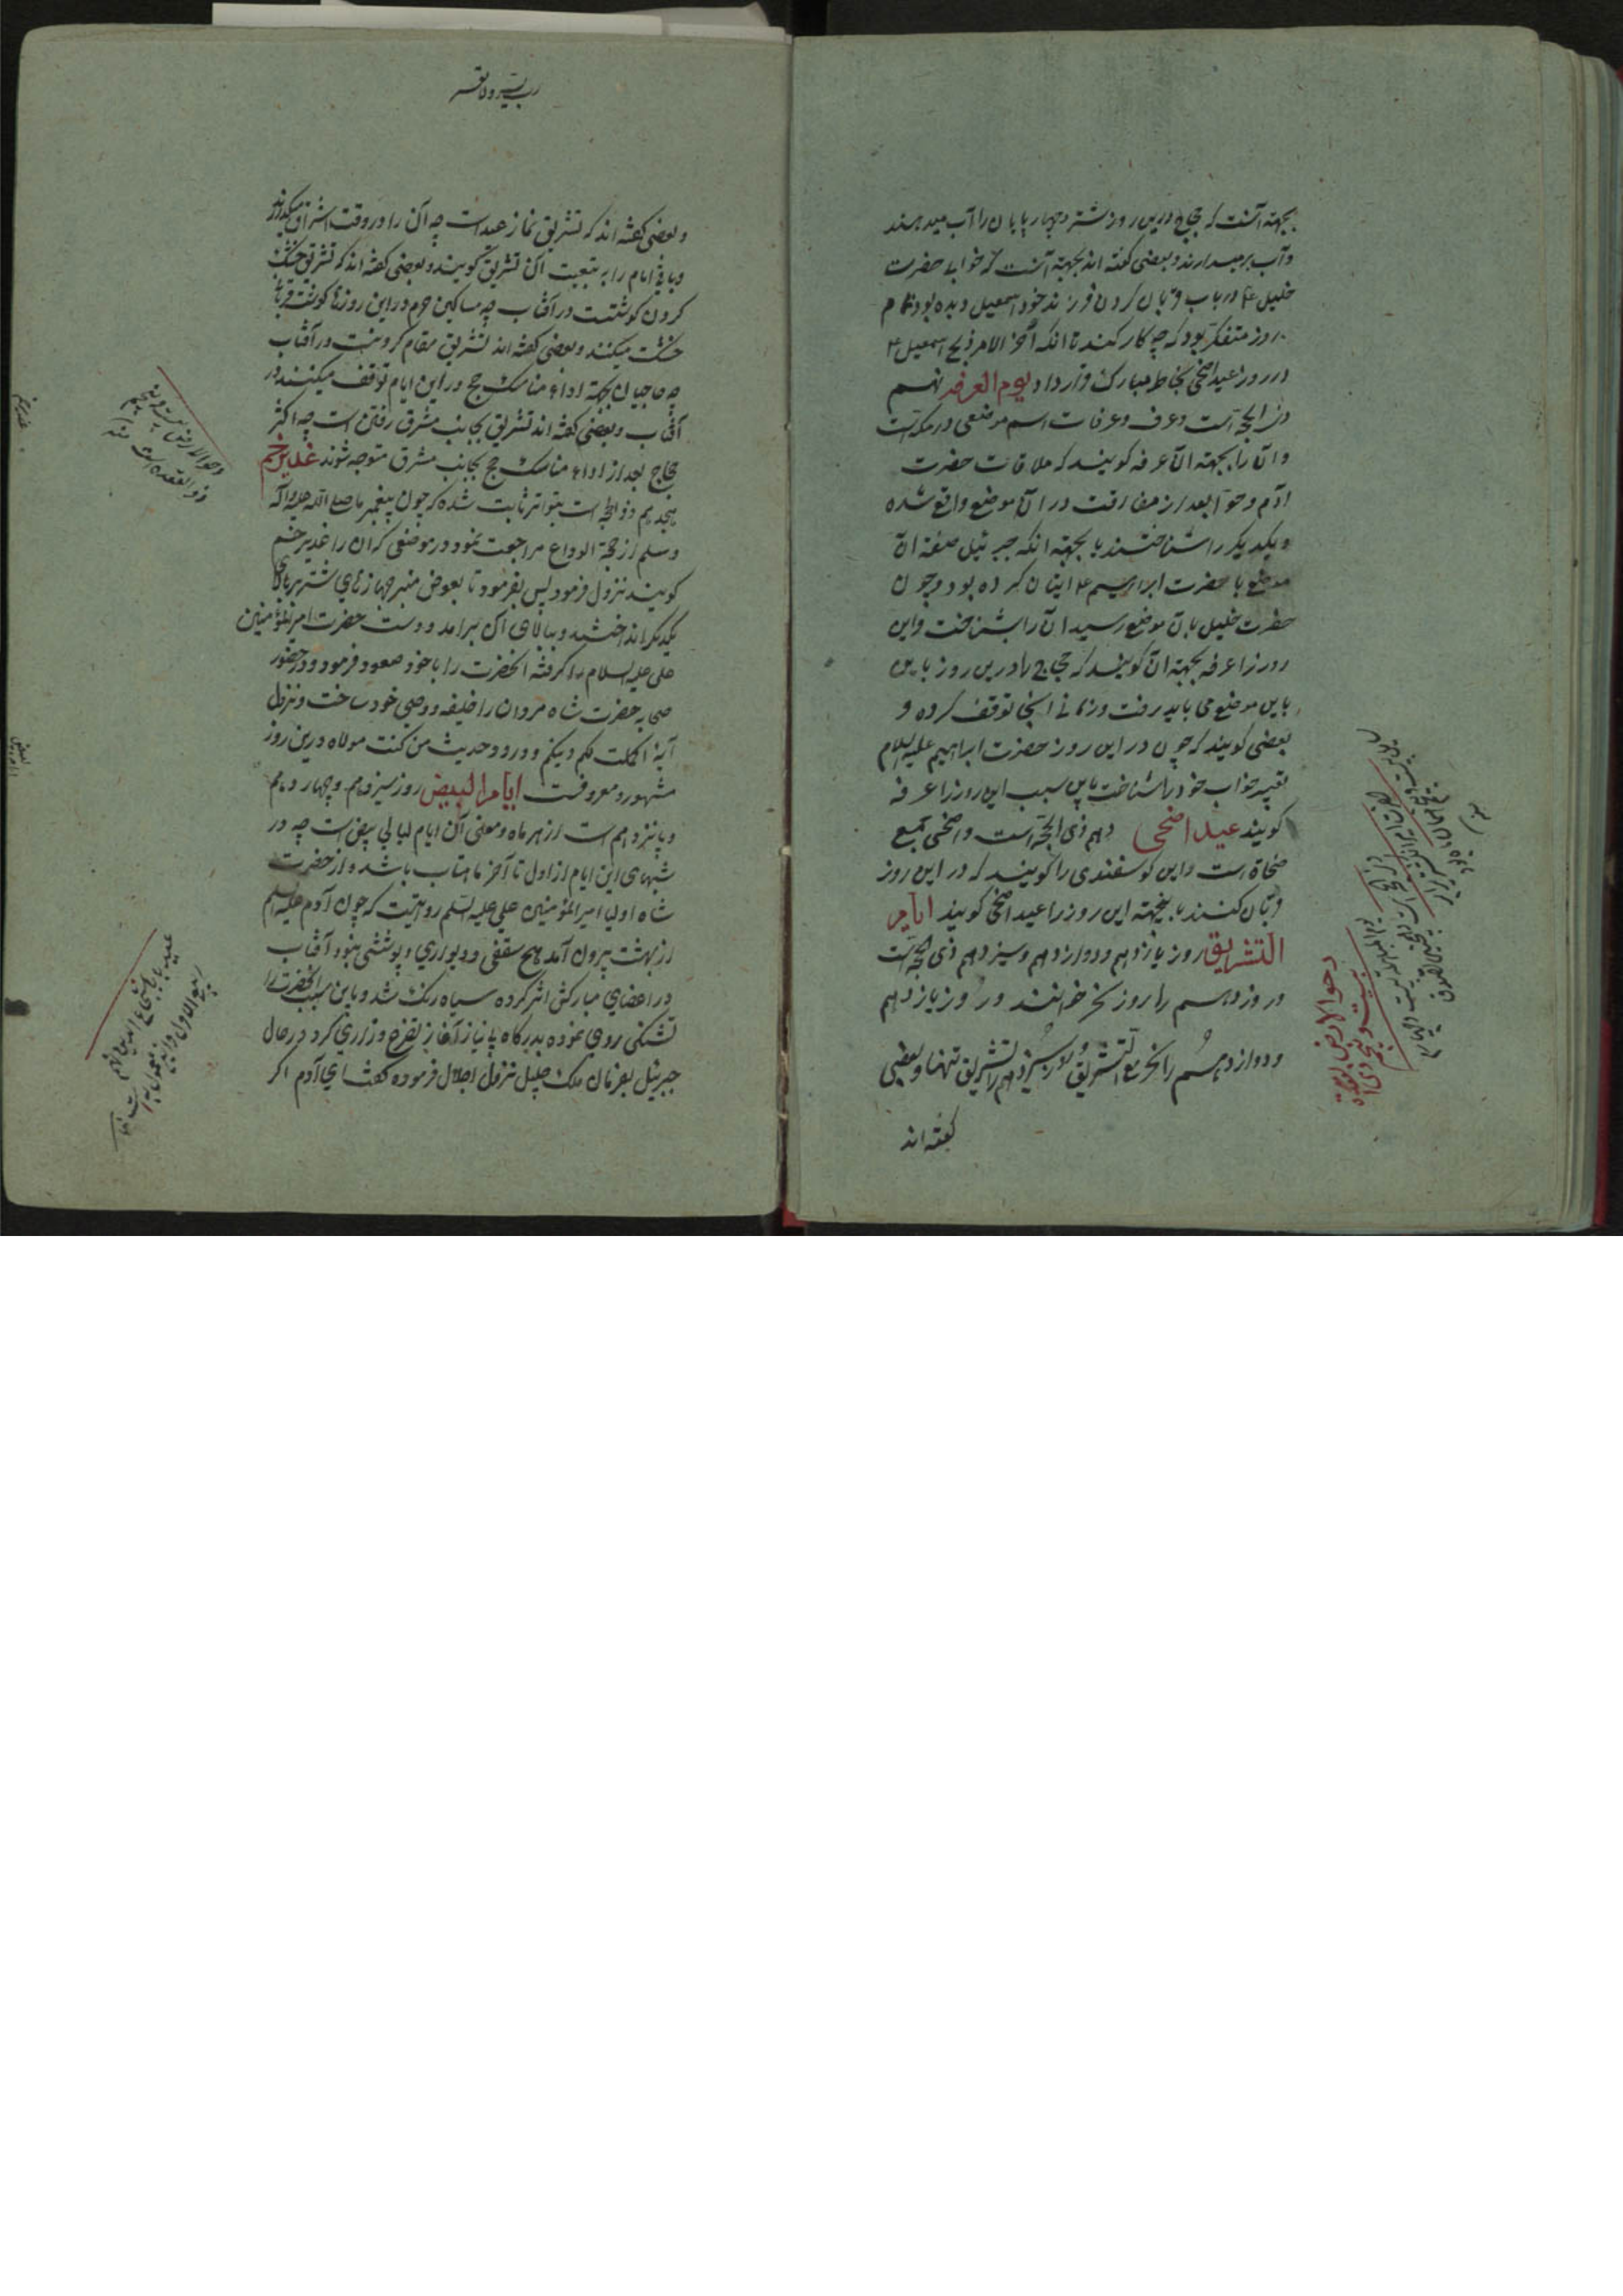 بجهته آنست که حجاج درین روز شتر و چهار پایان را آب میدهند
و آب برمیدارند و بعضی گفته اند بجهته آنست که خوابی حضرت
خلیل ع در باب قربان کردن فرزند خود اسمعیل دیده بود تمام
روز متفکر بود که چه کار کند تا انکه آخر الامر ذبح اسمعیل ع
در روز عید اضحی بخاطر مبارک قرار داد یوم العرفه نهم
ذی الحجه است و عرف و عرفات اسم موضعی در مکه است
و آن را بجهته آن عرفه گویند که ملاقات حضرت
آدم و حوا بعد از مفارقت در آن موضع واقع شده
و یکدیگر را شناختند یا بجهته انکه جبرئیل صفة آن
موضع با حضرت ابراهیم ع بیان کرده بود و چون
حضرت خلیل بان موضع رسید آن را بشناخت و این
روز را عرفه بجهته آن گویند که حجاج را درین روز باین
باین موضع می باید رفت و زمانی اینجا توقف کرده و
بعضی گویند که چون در این روز حضرت ابراهیم علیه السلام
تعبیر خواب خود را شناخت باین سبب این روز را عرفه
گویند عید اضحی دهم ذی الحجه است و اضحی جمع
ضحاة است و این گوسفندی را گویند که در این روز
قربان کنند باینجهته این روز را عید اضحی گویند ایام
التشریق روز یازدهم و دوازدهم و سیزدهم ذی حجه است
و روز دهم را روز نحر خوانند و روز یازدهم
و دوازدهم را نحر مع التشریق و روز سیزدهم را تشریق تنها و بعضی
گفته اند
دحو الارض
بیست و پنجم ذی
رب یسر ولا تعسر
و بعضی گفته اند که تشریق نماز عید است چه آن را در وقت اشراق میگذارند
و باقی ایام را به تبعیت آن تشریق گویند و بعضی گفته اند که تشریق خشک
کردن گوشتست در آفتاب چه مساکین حرم در این روزها گوشت قربانی
خشک میکنند و بعضی گفته اند تشریق مقام کردنست در آفتاب
چه حاجیان بجهته اداء مناسک حج در این ایام توقف میکنند در
آفتاب و بعضی گفته اند تشریق بجانب مشرق رفتن است چه اکثر
حجاج بعد از اداء مناسک حج بجانب مشرق متوجه شوند غدیر خم
هیجدهم ذوالحجه است بتواتر ثابت شده که چون پیغمبر ما صلی الله علیه و آله
و سلم از حجة الوداع مراجعت نمود در موضعی که آن را غدیر خم
گویند نزول فرمود پس بفرمود تا بعوض منبر جهازهای شتر بر بالای
یکدیگر انداختند و ببالای آن برامد و دست حضرت امیر المؤمنین
علی علیه السلام را گرفته آنحضرت را با خود صعود فرمود و در حضور
صحابه حضرت شاه مردان را خلیفه و وصی خود ساخت و نزول
آیهٔ اکملت لکم دینکم و ورود حدیث من کنت مولاه درین روز
مشهور و معروفست ایام البیض روز سیزدهم و چهاردهم
و پانزدهم است از هر ماه و معنی آن ایام لیالی بیض است چه در
شبهای این ایام از اول تا آخر ماهتاب باشد و از حضرت
شاه اولیا امیر المؤمنین علی علیه السلم روایتیست که چون آدم علیه السلم
از بهشت بیرون آمد هیچ سقفی و دیواری و پوششی نبود آفتاب
در اعضای مبارکش اثر کرده سیاه رنگ شد و باین سبب آنحضرت را
تشنگی روی نموده بدرگاه بی نیاز آغاز تضرع و زاری کرد در حال
جبرئیل بفرمان ملک جلیل نزول اجلال فرموده گفت ای آدم اگر
دحو الارض بیست و پنجم
ذوالقعده است منه
عید بابا شجاع الدین نهم
ربیع الاول